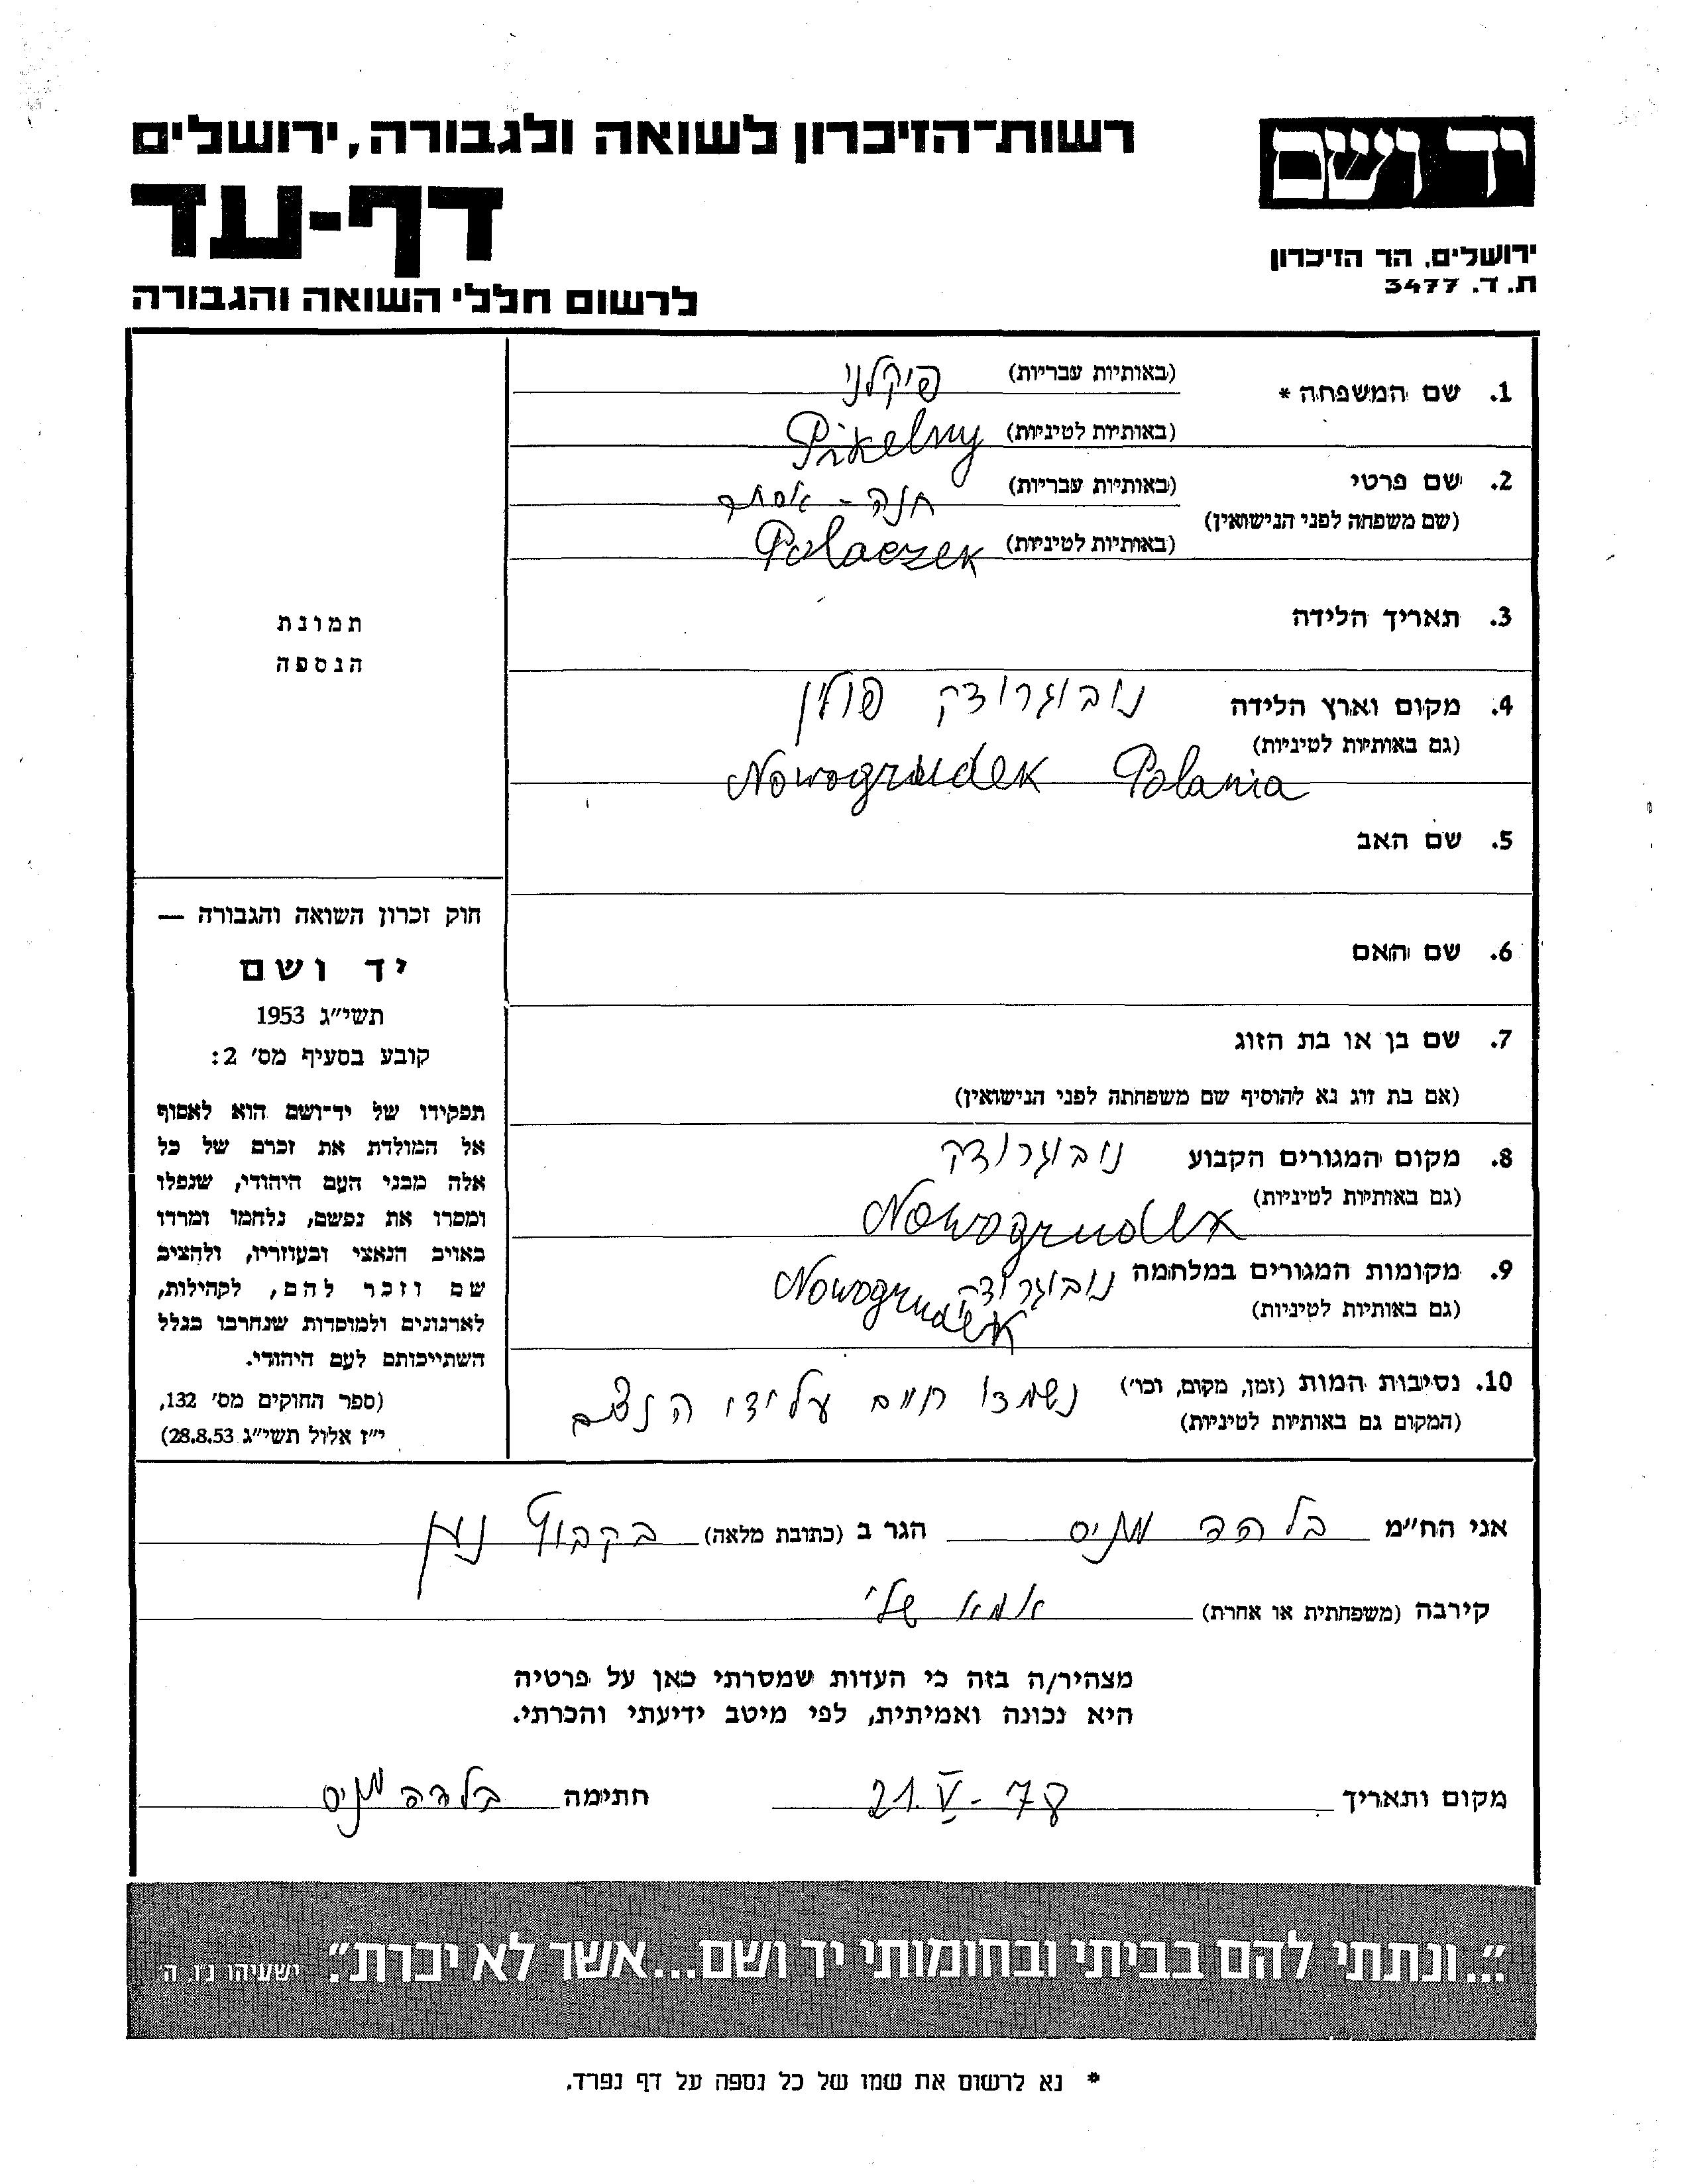 רשות־הזיכרון לשואה ולגבורה, ירושלים
יד ושם
דף-עד
ירושלים, הר הזיכרון
ת.ד. 3477
לרשום חללי השואה והגבורה
1. שם המשפחה * (באותיות עבריות) פיקלני
(באותיות לטיניות) Pikelny
2. שם פרטי (באותיות עבריות) חנה - אסתר
(שם משפחה לפני הנישואין)
(באותיות לטיניות) Polaczek
3. תאריך הלידה
4. מקום וארץ הלידה נובוגרודק פולין
(גם באותיות לטיניות)
Nowogrudek Polania
5. שם האב
6. שם האם
7. שם בן או בת הזוג
(אם בת זוג נא להוסיף שם משפחתה לפני הנישואין)
8. מקום המגורים הקבוע נובוגרודק
(גם באותיות לטיניות)
Nowogrudek
9. מקומות המגורים במלחמה נובוגרודק
(גם באותיות לטיניות) Nowogrudek
10. נסיבות המות (זמן, מקום, וכו') נשמדו חיים על ידי
(המקום גם באותיות לטיניות)
תמונת
הנספה
חוק זכרון השואה והגבורה —
יד ושם
תשי״ג 1953
קובע בסעיף מס׳ 2:
תפקידו של יד־ושם הוא לאסוף
אל המולדת את זכרם של כל
אלה מבני העם היהודי, שנפלו
ומסרו את נפשם, נלחמו ומרדו
באויב הנאצי ובעוזריו, ולהציב
שם וזכר להם, לקהילות,
לארגונים ולמוסדות שנחרבו בגלל
השתייכותם לעם היהודי.
(ספר החוקים מס׳ 132,
י״ז אלול תשי״ג 28.8.53)
אני הח״מ בלהה הגר ב (כתובת מלאה) בקבוץ
קירבה (משפחתית או אחרת) אמא שלי
מצהיר/ה בזה כי העדות שמסרתי כאן על פרטיה
היא נכונה ואמיתית, לפי מיטב ידיעתי והכרתי.
מקום ותאריך 21.V-78 חתימה בלהה
״...ונתתי להם בביתי ובחומותי יד ושם...אשר לא יכרת״. ישעיהו נ״ו. ה׳
* נא לרשום את שמו של כל נספה על דף נפרד.